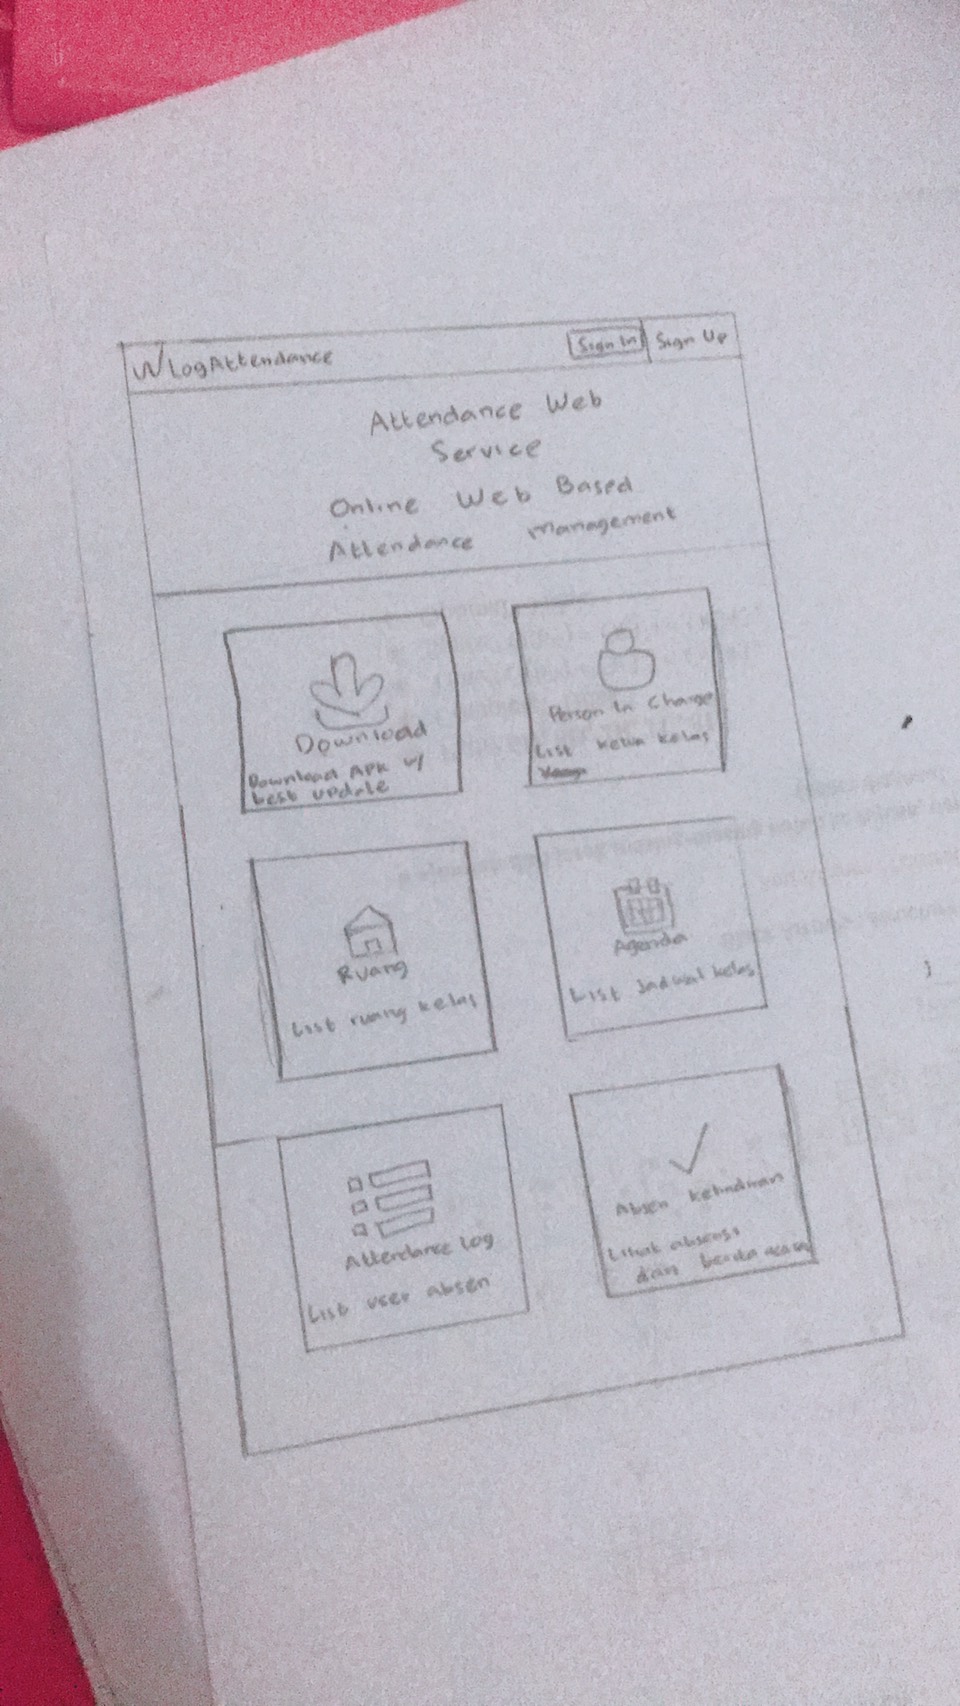 LogAttendance
Sign In
Sign Up
Attendance Web
Service
Online Web Based
Attendance Management
Download
Download APK w/
best update
Person In Charge
List ketua kelas
Ruang
List ruang kelas
Agenda
List Jadwal kelas
Attendance Log
List user absen
Absen kehadiran
Lihat absensi
dan berita acara